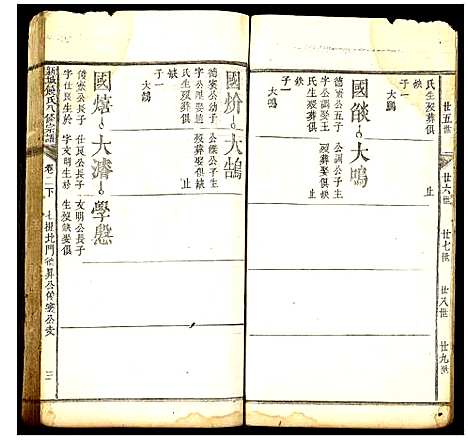 廿五世
廿六世
廿七世
廿八世
廿九世
氏生歿葬俱
缺
子一
大鵰
止
國燄
大鳴
德寀公五子
字公調娶王
氏生歿葬俱
缺
子一
大鳴
公調公子生
歿葬娶俱缺
止
國炌
大鵠
德寀公幼子
字公
氏生歿葬俱
缺
子一
大鵠
公子生
歿葬娶俱缺
止
國熺
大濟
學懸
俊寀公長子
字仕良生於
仕良公長子
字文明生於
文明公長子
生歿缺娶俱
新城饒氏八修宗譜
卷二下
七提北門德昇公俊寀公支
三